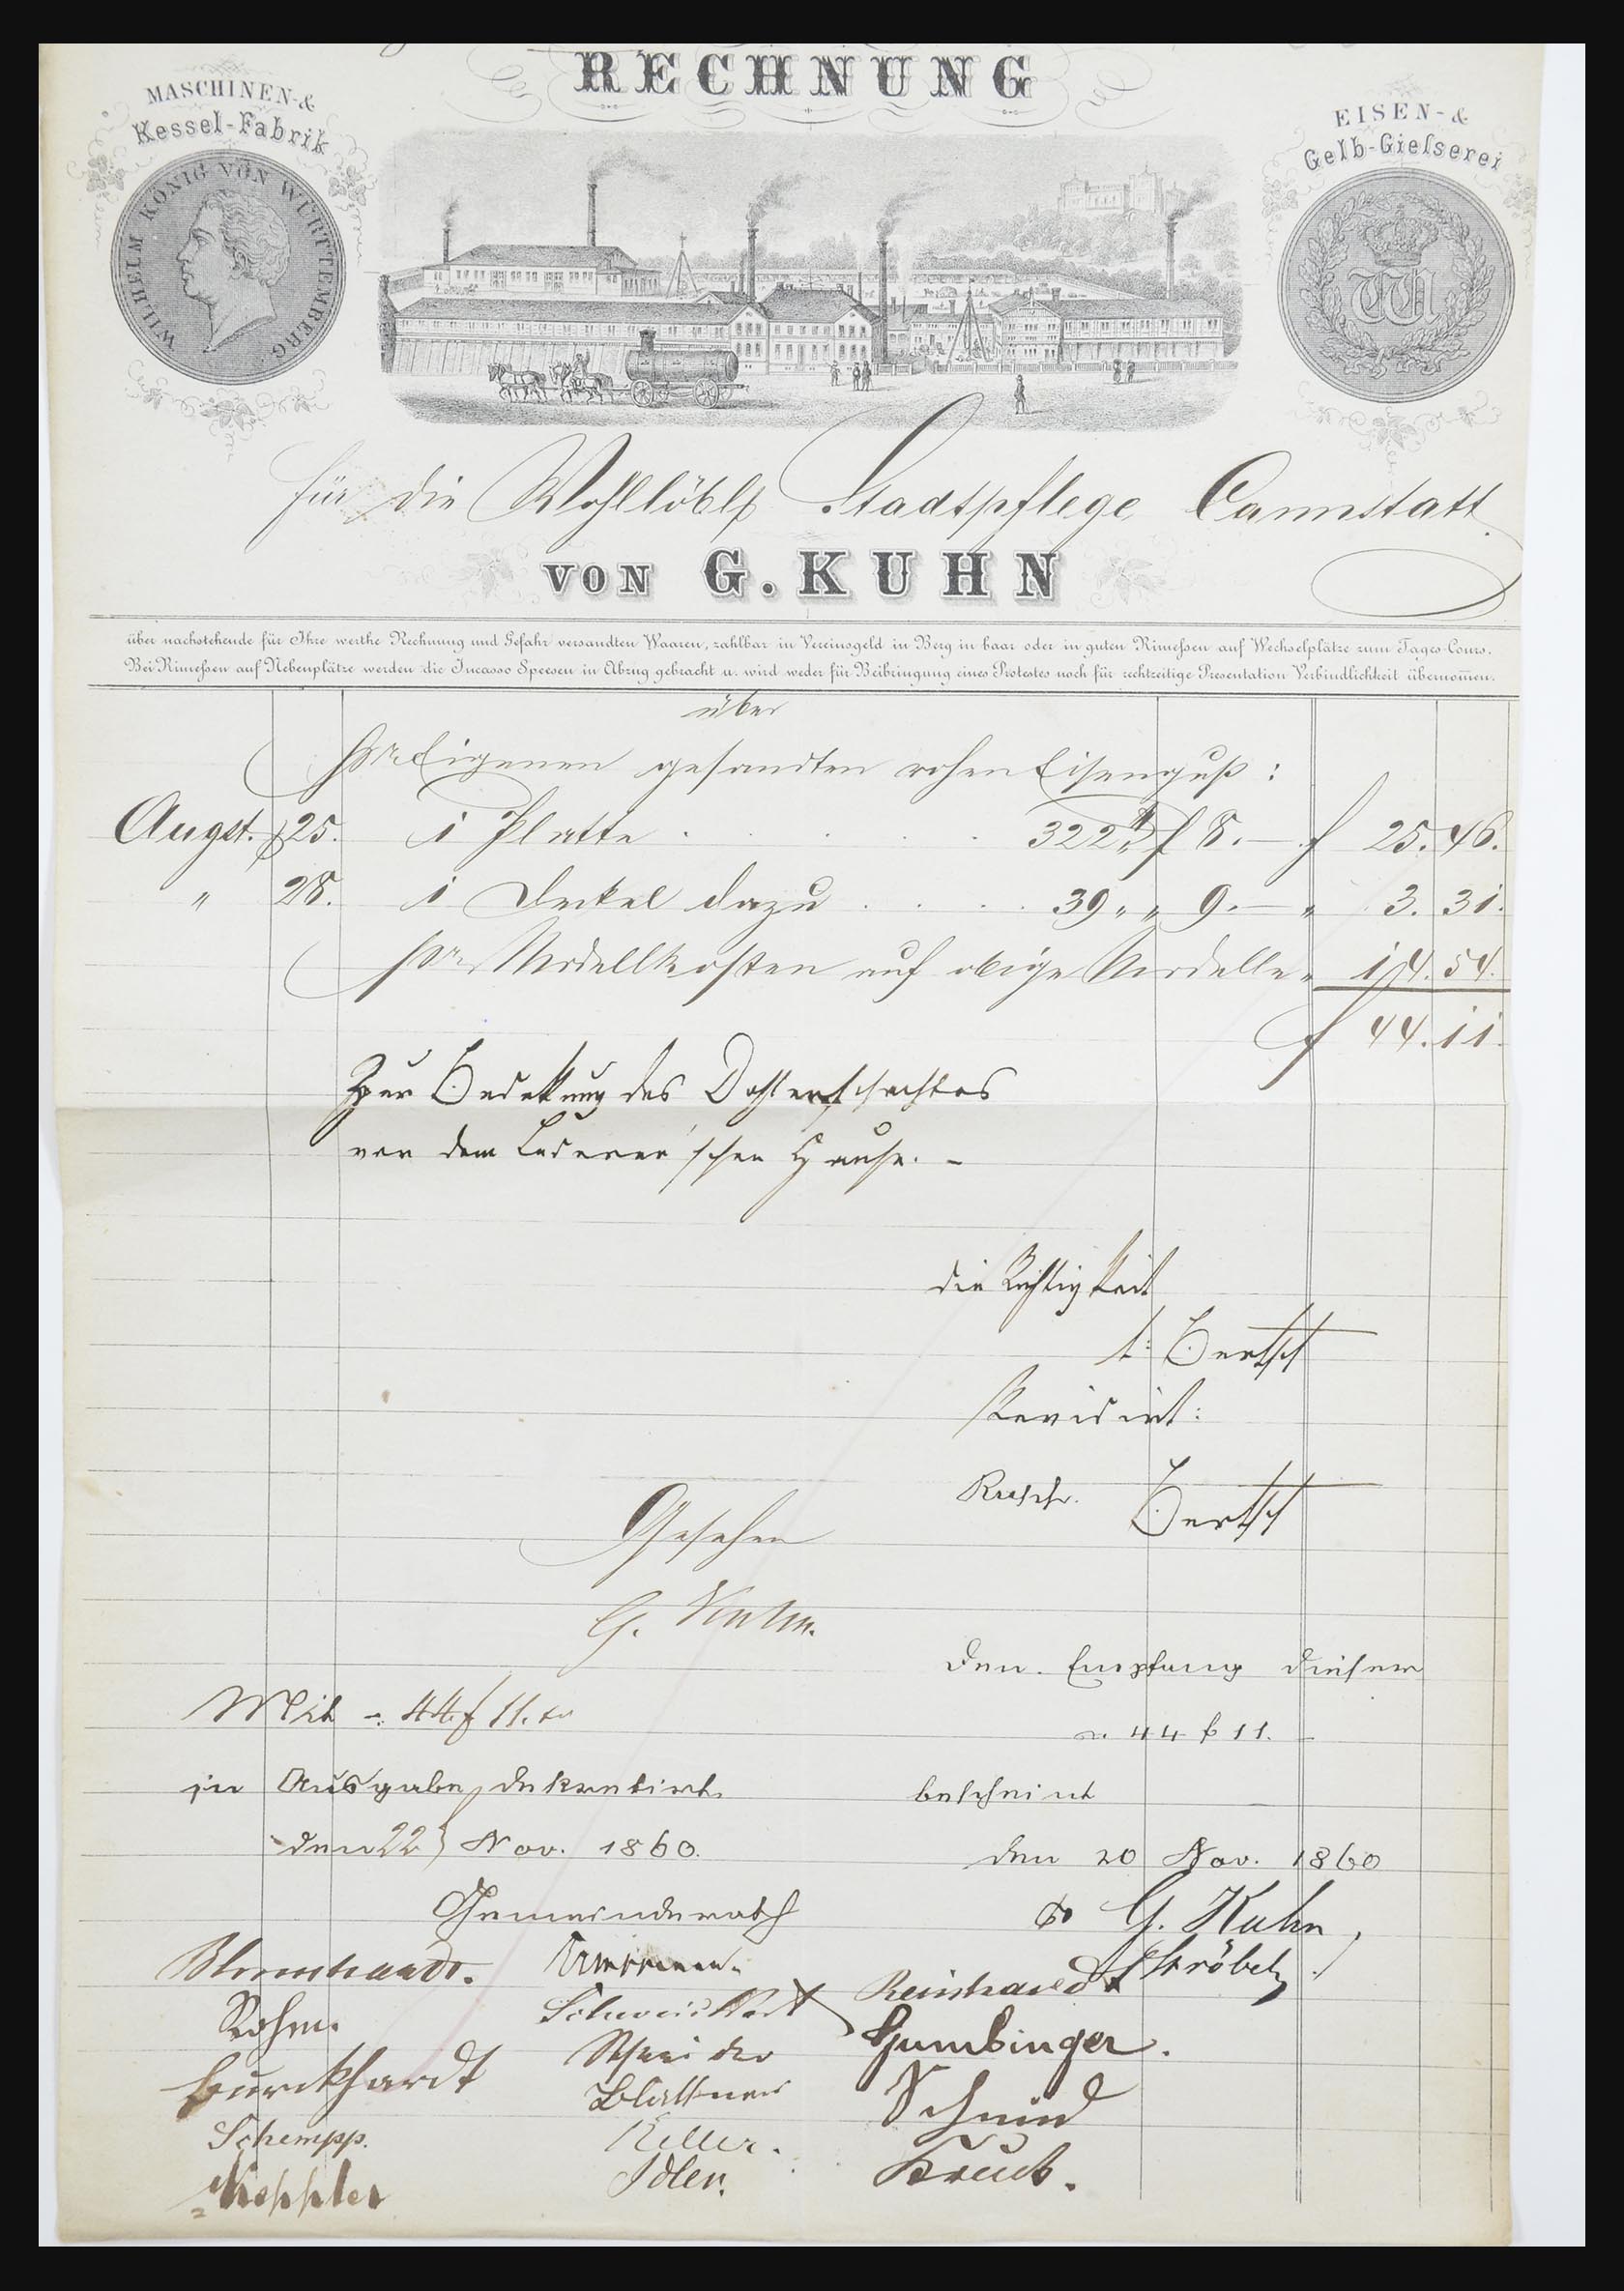 RECHNUNG
MASCHINEN-&
Kessel-Fabrik
WILHELM KÖNIG VON WÜRTTEMBERG
EISEN-&
Gelb-Gieſserei
W
für die Wohllöbl. Stadtpflege Cannstatt
VON G. KUHN
über nachstehende für Ihre werthe Rechnung und Gefahr versandten Waaren, zahlbar in Vereinsgeld in Berg in baar oder in guten Rimeſsen auf Wechselplätze zum Tages-Cours.
Bei Rimeſsen auf Nebenplätze werden die Incasso Speesen in Abzug gebracht u. wird weder für Beibringung eines Protestes noch für rechtzeitige Presentation Verbindlichkeit übernom̄en.
über
pr Eigenen gesandten rohen Eisenguß:
Augst. 25. 1 Platte 322 ℔ f 8.— f 25. 46.
" 28. 1 Deckel dazu 39 " " 9.— " 3. 31.
pr Modellkosten auf obige Modelle " 14. 54.
f 44. 11.
Zur Bedekung des Dohlenschachtes
vor dem Lederer'schen Hause. –
die Richtigkeit
t: Bertsch
Revidirt:
Bertsch
Gesehen
G. Kuhn.
Den Empfang dieser
44 f 11. –
Mit -: 44 f 11. kr
in Ausgabe dekretirt.
bescheint
den 22 Nov. 1860.
den 20 Nov. 1860
Gemeinderath
G. Kuhn,
Ströbel
Blumhardt.
Reinhardt
Rohm.
Schweickert
Gumbinger.
Burckhardt
Schneider
Blattner
Schmid
Schempp.
Keller.
Keppler
Idler.